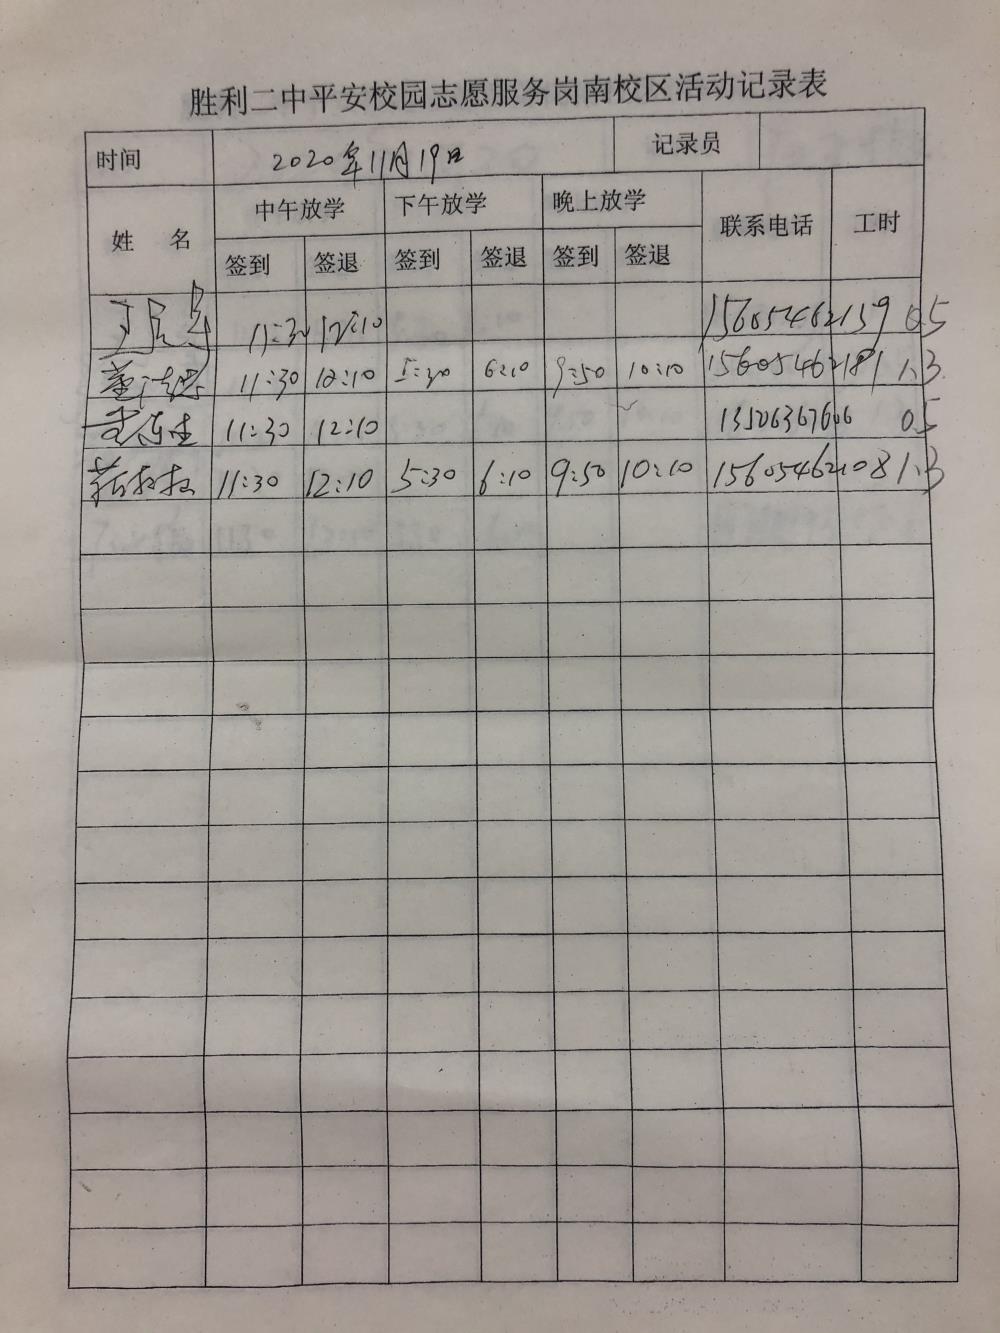 胜利二中平安校园志愿服务岗南校区活动记录表
时间 2020年11月19日 记录员
姓 名 中午放学 下午放学 晚上放学 联系电话 工时
签到 签退 签到 签退 签到 签退
11:30 12:10 15605462159 0.5
董 11:30 12:10 5:30 6:10 9:50 10:10 15605462181 1.3
11:30 12:10 13506367606 0.5
11:30 12:10 5:30 6:10 9:50 10:10 15605462108 1.3